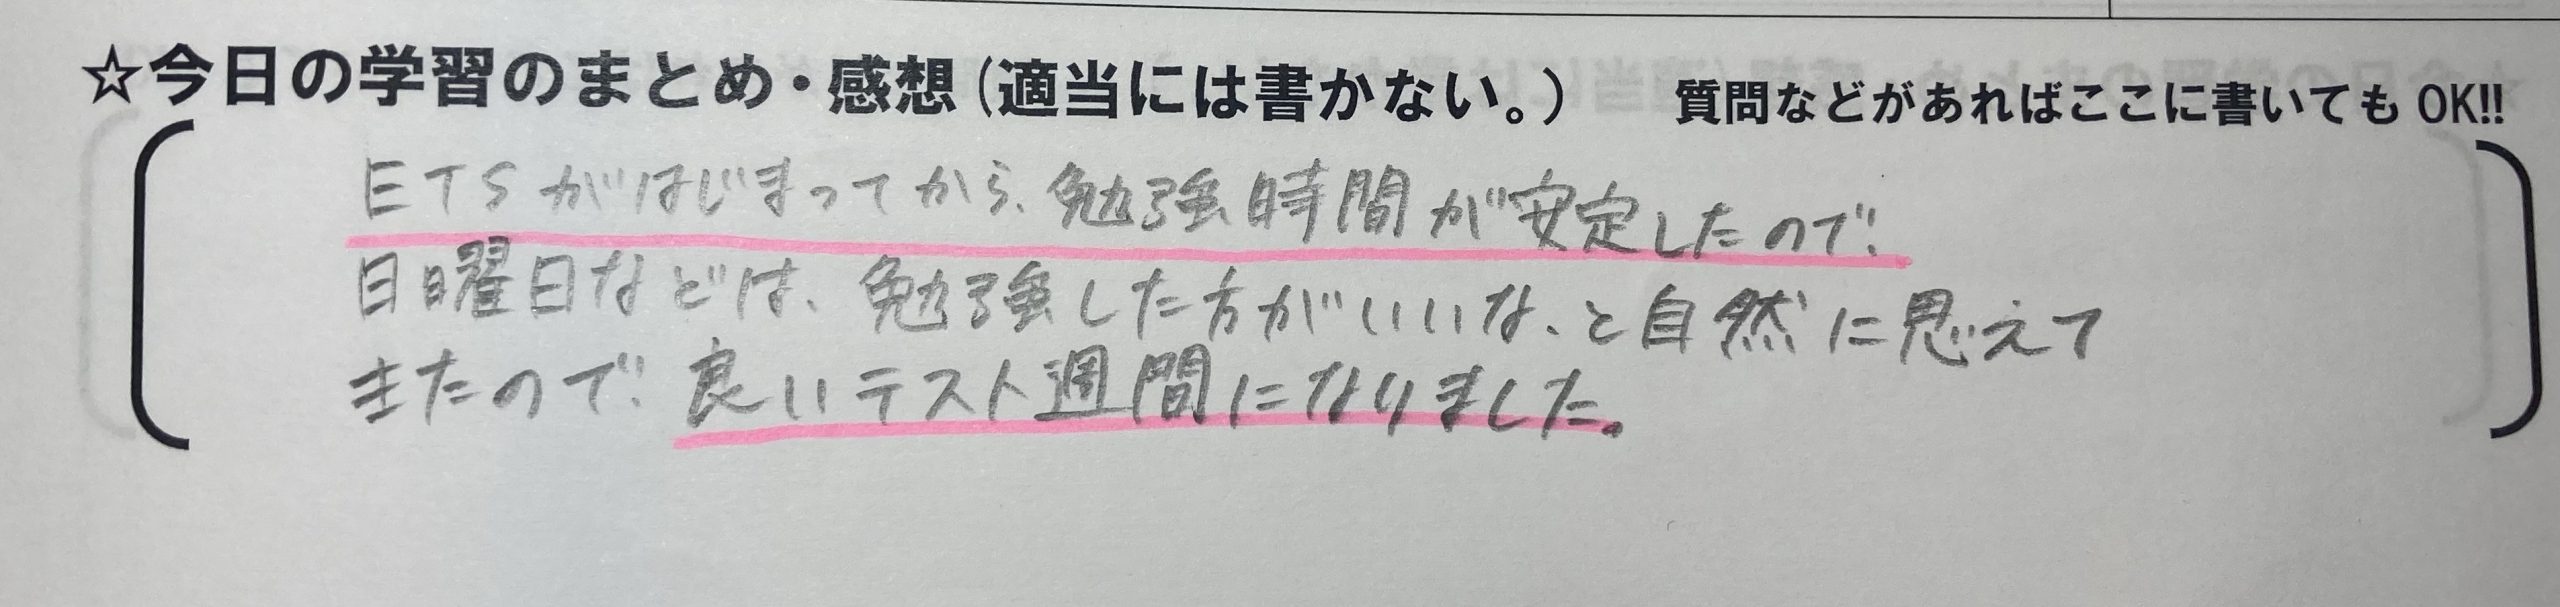 ☆今日の学習のまとめ・感想（適当には書かない。） 質問などがあればここに書いてもOK!!
ETSがはじまってから、勉強時間が安定したので、
日曜日などは、勉強した方がいいな、と自然に思えて
きたので、良いテスト週間になりました。